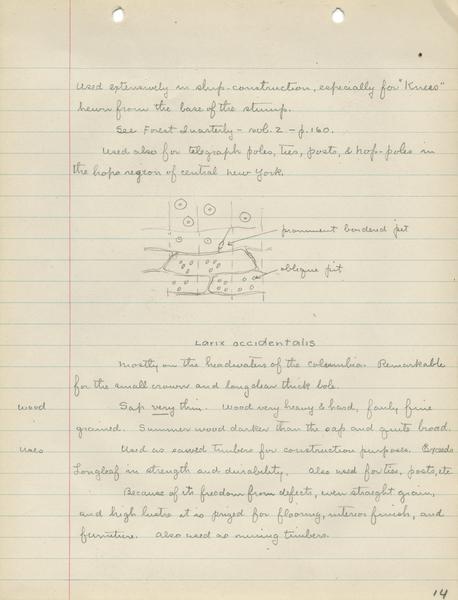 Used extensively in ship-construction, especially for "Knees"
hewn from the base of the stump.
See Forest Quarterly - vol. 2 - p. 160.
Used also for telegraph poles, ties, posts, & hop-poles in
the hops region of central New York.
prominent bordered pit
oblique pit
Larix occidentalis
Mostly on the headwaters of the Columbia. Remarkable
for the small crown and long clear thick bole.
Wood Sap very thin. Wood very heavy & hard, fairly fine
grained. Summer wood darker than the sap and quite broad.
Uses Used as sawed timbers for construction purposes. Exceeds
Longleaf in strength and durability. Also used for ties, posts, etc
Because of its freedom from defects, even straight grain,
and high lustre it is prized for flooring, interior finish, and
furniture. Also used as mining timbers.
14